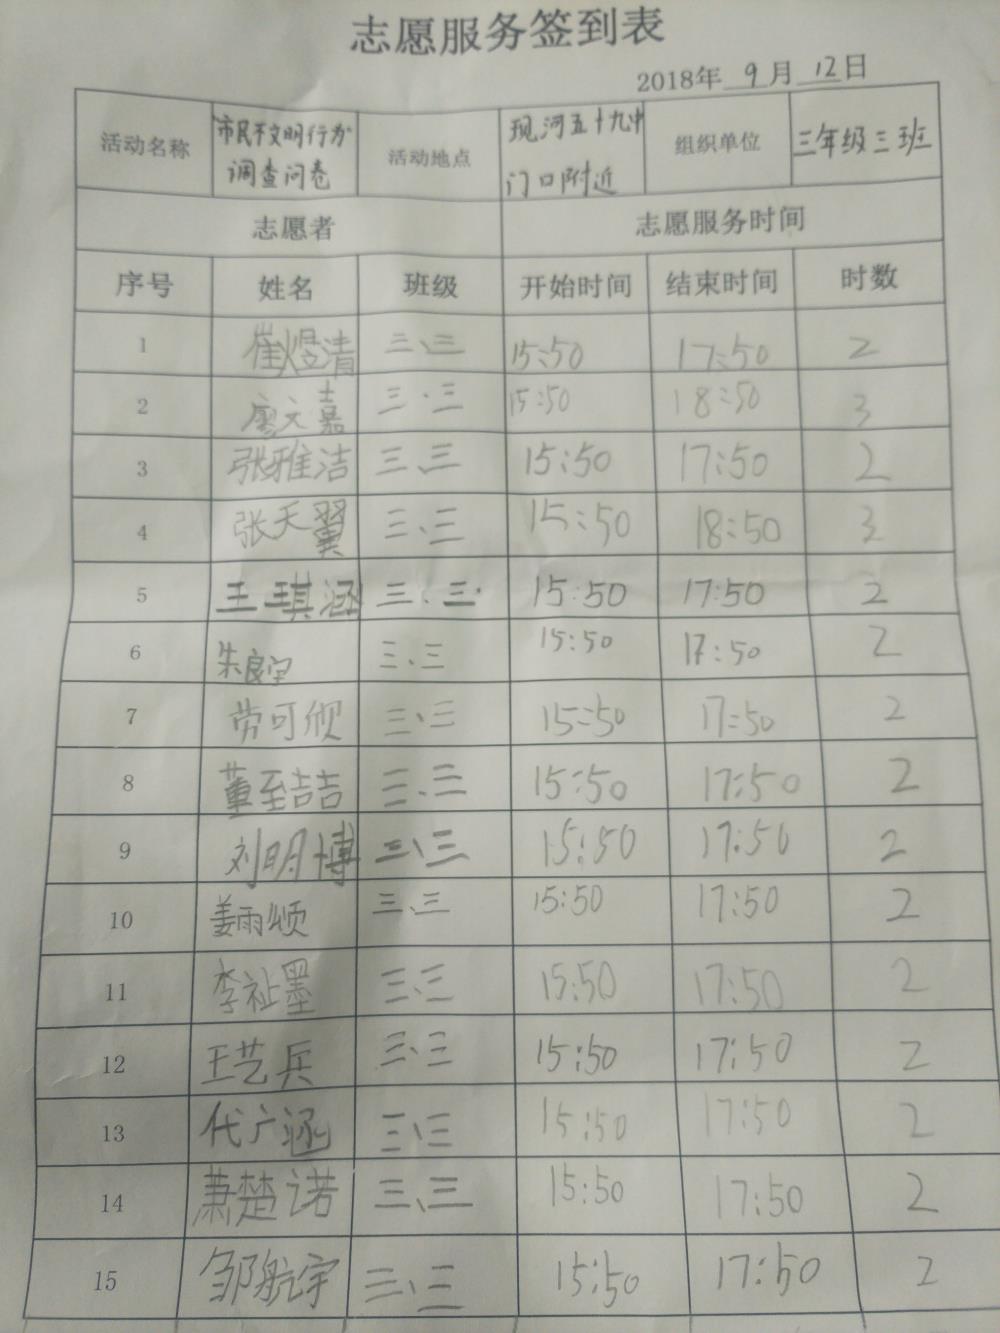 志愿服务签到表
2018年 9 月 12 日
活动名称 市民不文明行为调查问卷 活动地点 现河五十九中门口附近 组织单位 三年级三班
志愿者 志愿服务时间
序号 姓名 班级 开始时间 结束时间 时数
1 崔煜清 三、三 15:50 17:50 2
2 廖文嘉 三·三 15:50 18:50 3
3 张雅洁 三、三 15:50 17:50 2
4 张天翼 三、三 15:50 18:50 3
5 王琪涵 三、三 15:50 17:50 2
6 朱良宇 三、三 15:50 17:50 2
7 劳可 三、三 15:50 17:50 2
8 董至喆 三、三 15:50 17:50 2
9 刘明博 三、三 15:50 17:50 2
10 姜雨颂 三、三 15:50 17:50 2
11 李祉墨 三、三 15:50 17:50 2
12 王艺兵 三、三 15:50 17:50 2
13 代广涵 三、三 15:50 17:50 2
14 萧楚诺 三、三 15:50 17:50 2
15 邹航宇 三、三 15:50 17:50 2